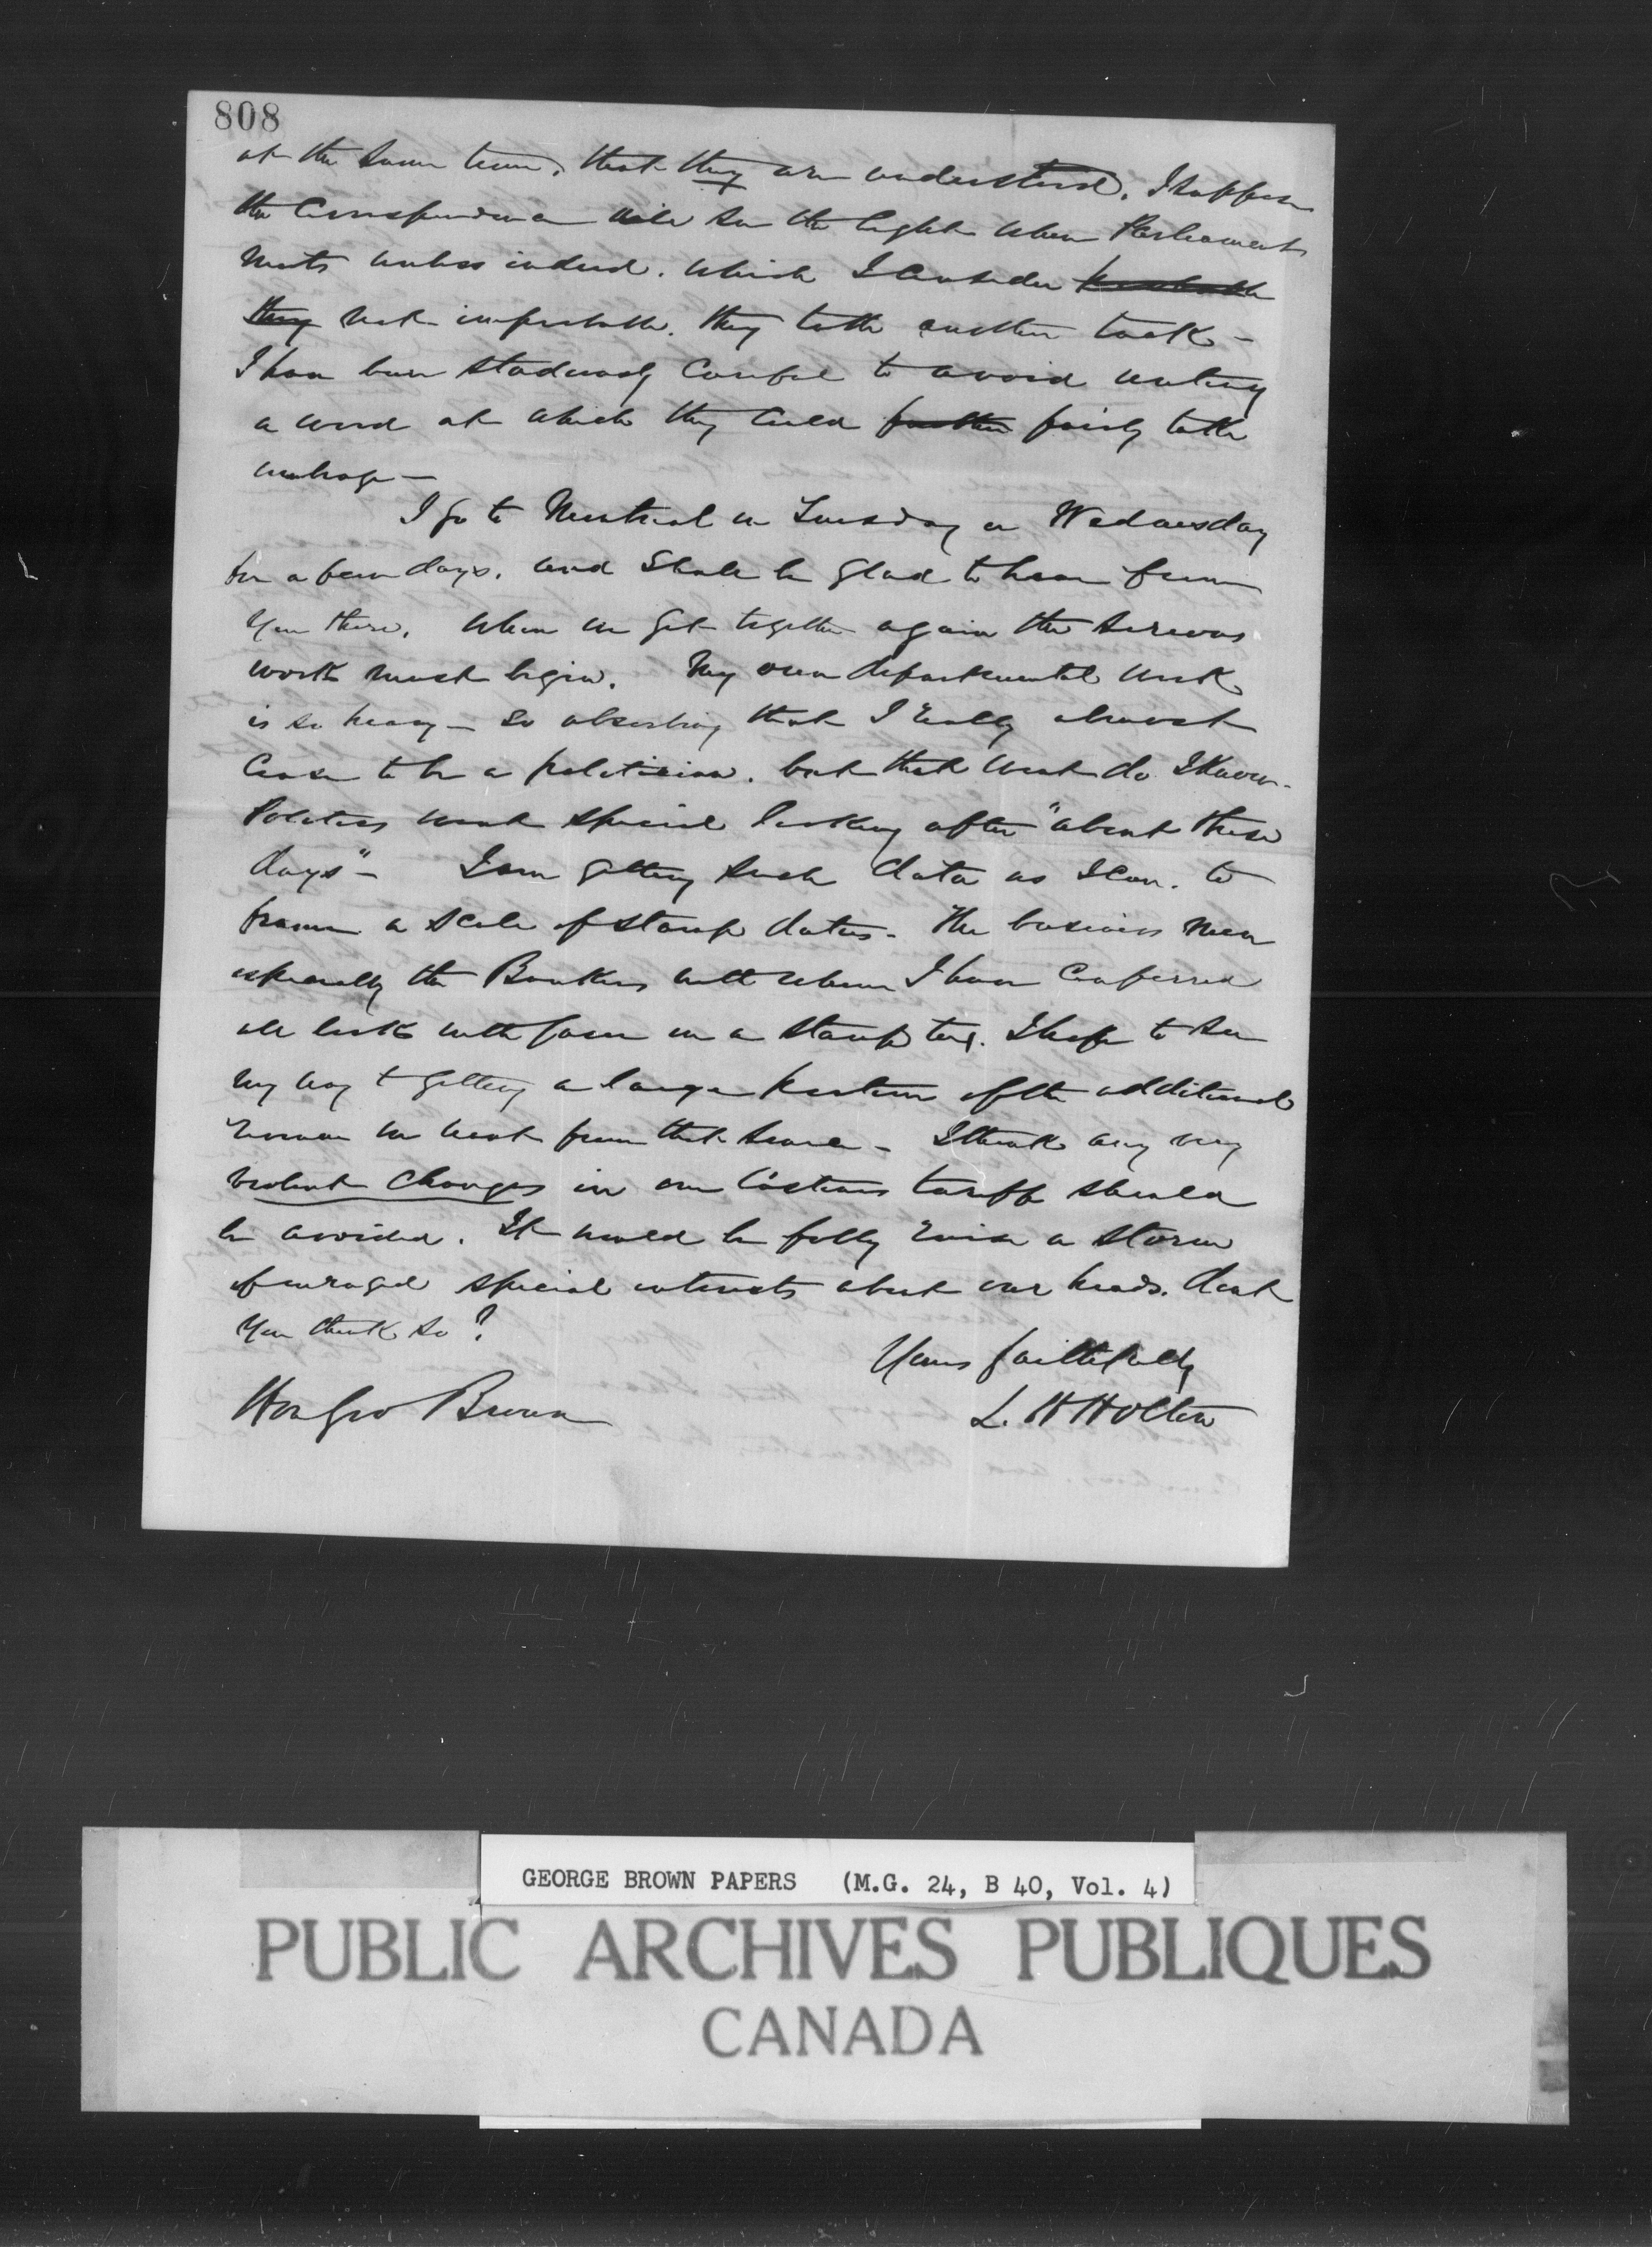 808
at the same time, that they are understood. I suppose
the Correspondence will see the light when Parliament
meets unless indeed. which I consider probable
they not improbable. they take another tack -
I have been studiously Careful to avoid writing
a word at which they Could further fairly take
umbrage -
I go to Montreal on Tuesday or Wednesday
for a few days. and shall be glad to hear from
you there. When we get together again the serious
work must begin. My own departmental work
is so heavy - so absorbing that I really almost
Cease to be a politician. but that wont do I know.
Politics want special looking after "about these
days" - I am getting such data as I Can. to
frame a scale of stamp duties. The business men
especially the Bankers with whom I have Conferred
all look with favor on a stamp tax. I hope to see
my way to getting a large portion of the additional
revenue we want from that source - I think any very
violent Changes in our Customs tariff should
be avoided. It would be folly raise a storm
of enraged special interests about our heads. dont
you think so?
Yours faithfully
L. H Holton
Hon Geo Brown
GEORGE BROWN PAPERS (M.G. 24, B 40, Vol. 4)
PUBLIC ARCHIVES PUBLIQUES
CANADA